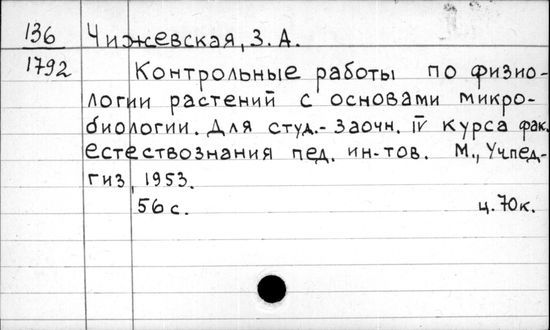 136 Чижевская, З. А.
1792 Контрольные работы по физио-
логии растений с основами микро-
биологии. Для студ.-заочн. IV курса фак.
естествознания пед. ин-тов. М., Учпед-
гиз, 1953.
56 с. ц. 70 к.